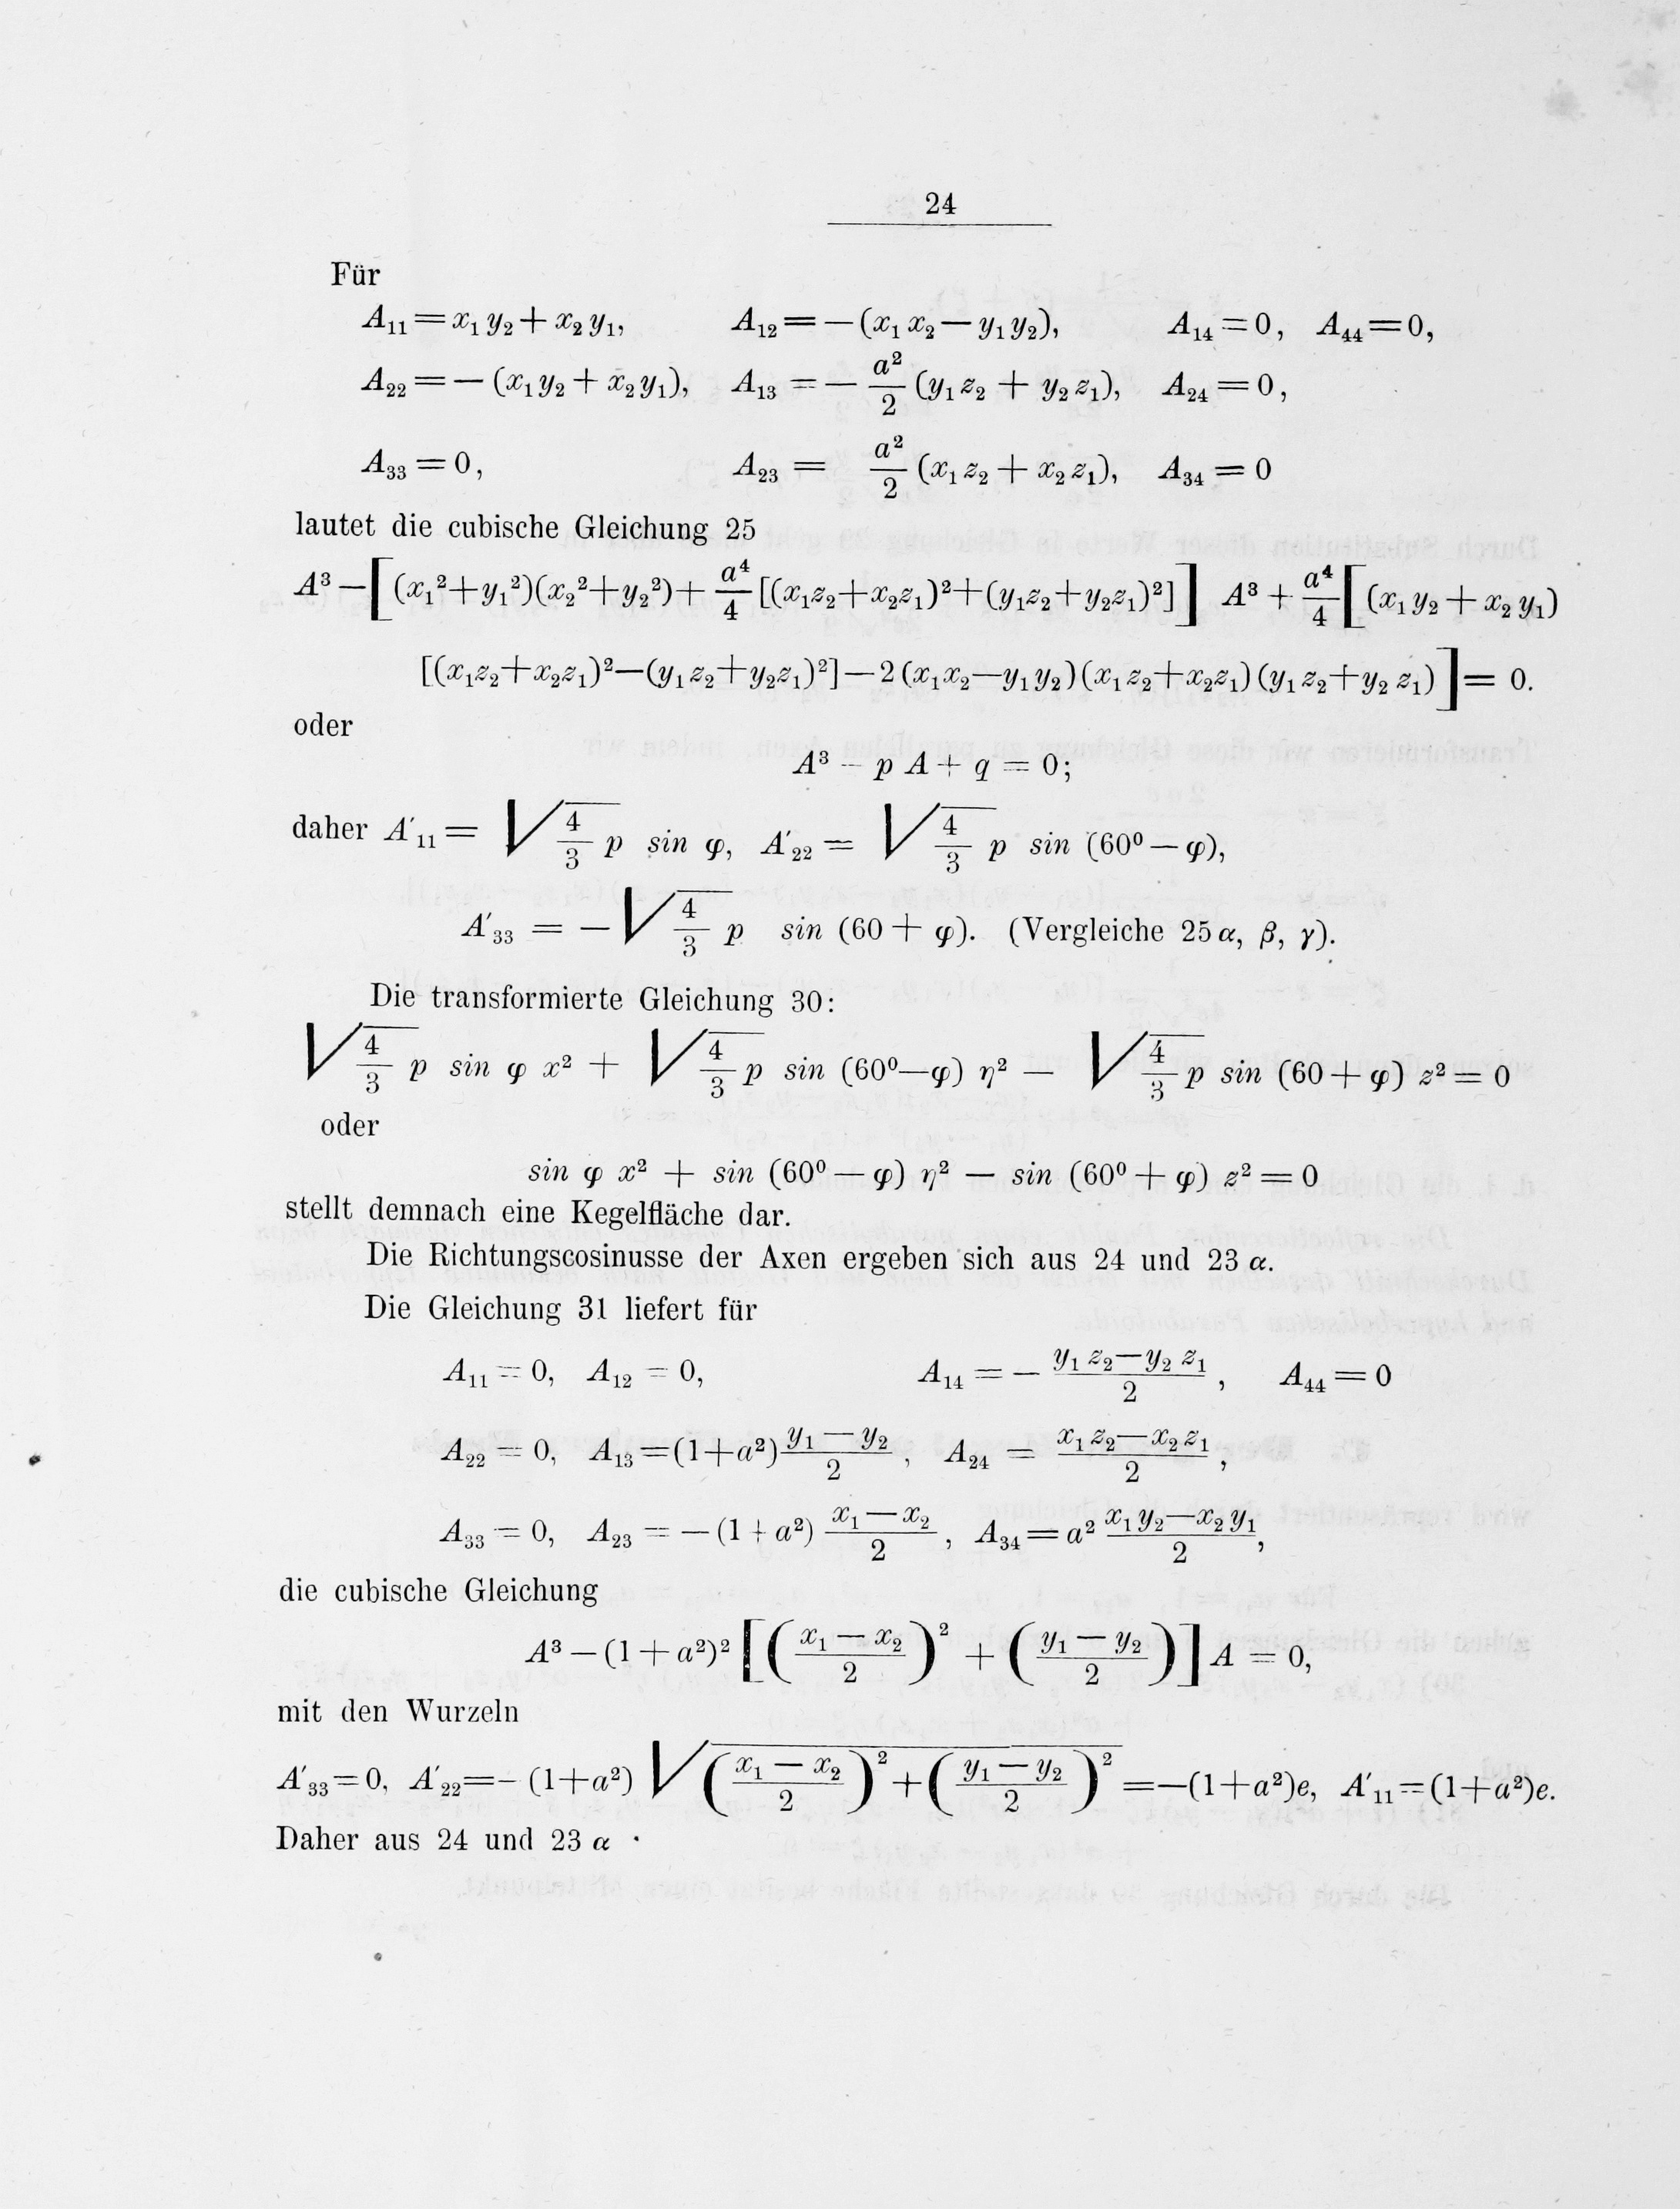 24
Für
A₁₁ = x₁ y₂ + x₂ y₁, A₁₂ = − (x₁ x₂ − y₁ y₂), A₁₄ = 0, A₄₄ = 0,
A₂₂ = − (x₁ y₂ + x₂ y₁), A₁₃ = − a²/2 (y₁ z₂ + y₂ z₁), A₂₄ = 0,
A₃₃ = 0, A₂₃ = a²/2 (x₁ z₂ + x₂ z₁), A₃₄ = 0
lautet die cubische Gleichung 25
A³ − [(x₁² + y₁²)(x₂² + y₂²) + a⁴/4 [(x₁z₂ + x₂z₁)² + (y₁z₂ + y₂z₁)²]] A³ + a⁴/4 [(x₁ y₂ + x₂ y₁)
[(x₁z₂ + x₂z₁)² − (y₁ z₂ + y₂z₁)²] − 2 (x₁x₂ − y₁ y₂) (x₁ z₂ + x₂z₁) (y₁ z₂ + y₂ z₁)] = 0.
oder
A³ − p A + q = 0;
daher A′₁₁ = √4/3 p sin φ, A′₂₂ = √4/3 p sin (60⁰ − φ),
A′₃₃ = − √4/3 p sin (60 + φ). (Vergleiche 25 α, β, γ).
Die transformierte Gleichung 30:
√4/3 p sin φ x² + √4/3 p sin (60⁰ − φ) η² − √4/3 p sin (60 + φ) z² = 0
oder
sin φ x² + sin (60⁰ − φ) η² − sin (60⁰ + φ) z² = 0
stellt demnach eine Kegelfläche dar.
Die Richtungscosinusse der Axen ergeben sich aus 24 und 23 α.
Die Gleichung 31 liefert für
A₁₁ = 0, A₁₂ = 0, A₁₄ = − (y₁ z₂ − y₂ z₁)/2, A₄₄ = 0
A₂₂ = 0, A₁₃ = (1 + a²) (y₁ − y₂)/2, A₂₄ = (x₁ z₂ − x₂ z₁)/2,
A₃₃ = 0, A₂₃ = − (1 + a²) (x₁ − x₂)/2, A₃₄ = a² (x₁ y₂ − x₂ y₁)/2,
die cubische Gleichung
A³ − (1 + a²)² [((x₁ − x₂)/2)² + ((y₁ − y₂)/2)] A = 0,
mit den Wurzeln
A′₃₃ = 0, A′₂₂ = − (1 + a²) √((x₁ − x₂)/2)² + ((y₁ − y₂)/2)² = − (1 + a²)e, A′₁₁ = (1 + a²)e.
Daher aus 24 und 23 α